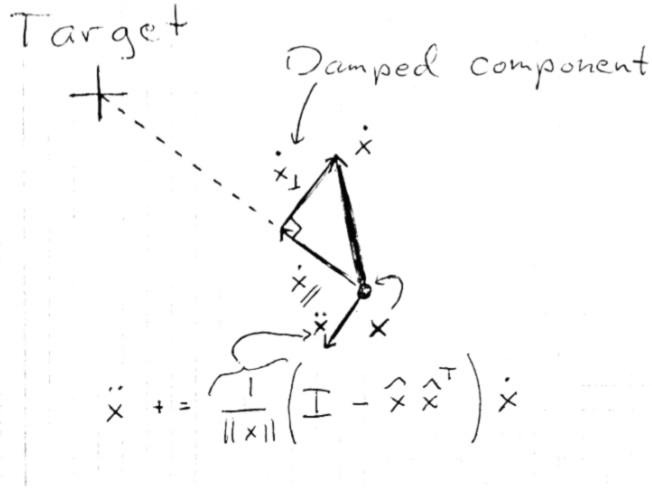 Target
Damped component
ẋ
ẋ⊥
ẋ//
ẍ
x
ẍ += 1/||x|| (I - x̂ x̂ᵀ) ẋ